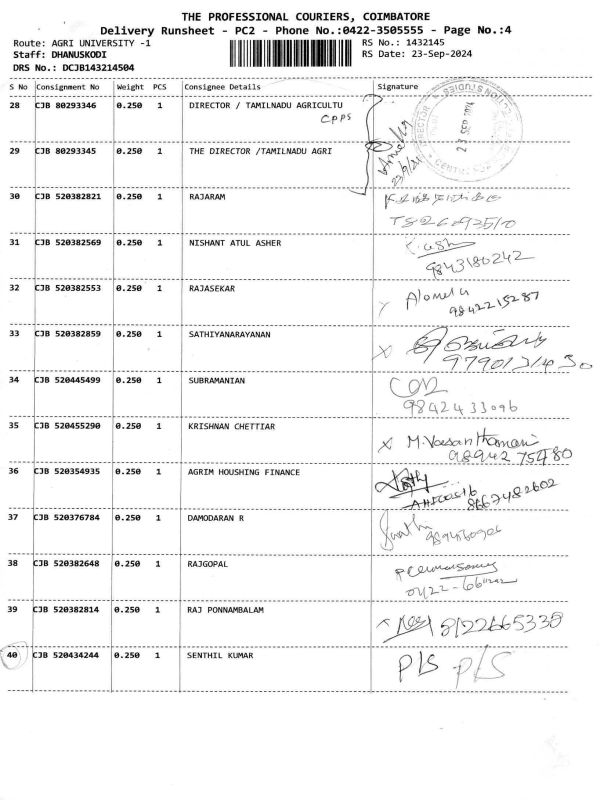 THE PROFESSIONAL COURIERS, COIMBATORE
Delivery Runsheet - PC2 - Phone No.:0422-3505555 - Page No.:4
Route: AGRI UNIVERSITY -1 RS No.: 1432145
Staff: DHANUSKODI RS Date: 23-Sep-2024
DRS No.: DCJB143214504
S No Consignment No Weight PCS Consignee Details Signature
28 CJB 80293346 0.250 1 DIRECTOR / TAMILNADU AGRICULTU
CPPS
23 SEP 2024
29 CJB 80293345 0.250 1 THE DIRECTOR /TAMILNADU AGRI
23/9/24
30 CJB 520382821 0.250 1 RAJARAM
31 CJB 520382569 0.250 1 NISHANT ATUL ASHER
9843180242
32 CJB 520382553 0.250 1 RAJASEKAR
9842215287
33 CJB 520382859 0.250 1 SATHIYANARAYANAN
9790131430
34 CJB 520445499 0.250 1 SUBRAMANIAN
9842433096
35 CJB 520455290 0.250 1 KRISHNAN CHETTIAR
X M.Vasanthamani
9894275480
36 CJB 520354935 0.250 1 AGRIM HOUSHING FINANCE
8667482602
37 CJB 520376784 0.250 1 DAMODARAN R
38 CJB 520382648 0.250 1 RAJGOPAL
39 CJB 520382814 0.250 1 RAJ PONNAMBALAM
8122665338
40 CJB 520434244 0.250 1 SENTHIL KUMAR
P/S P/S